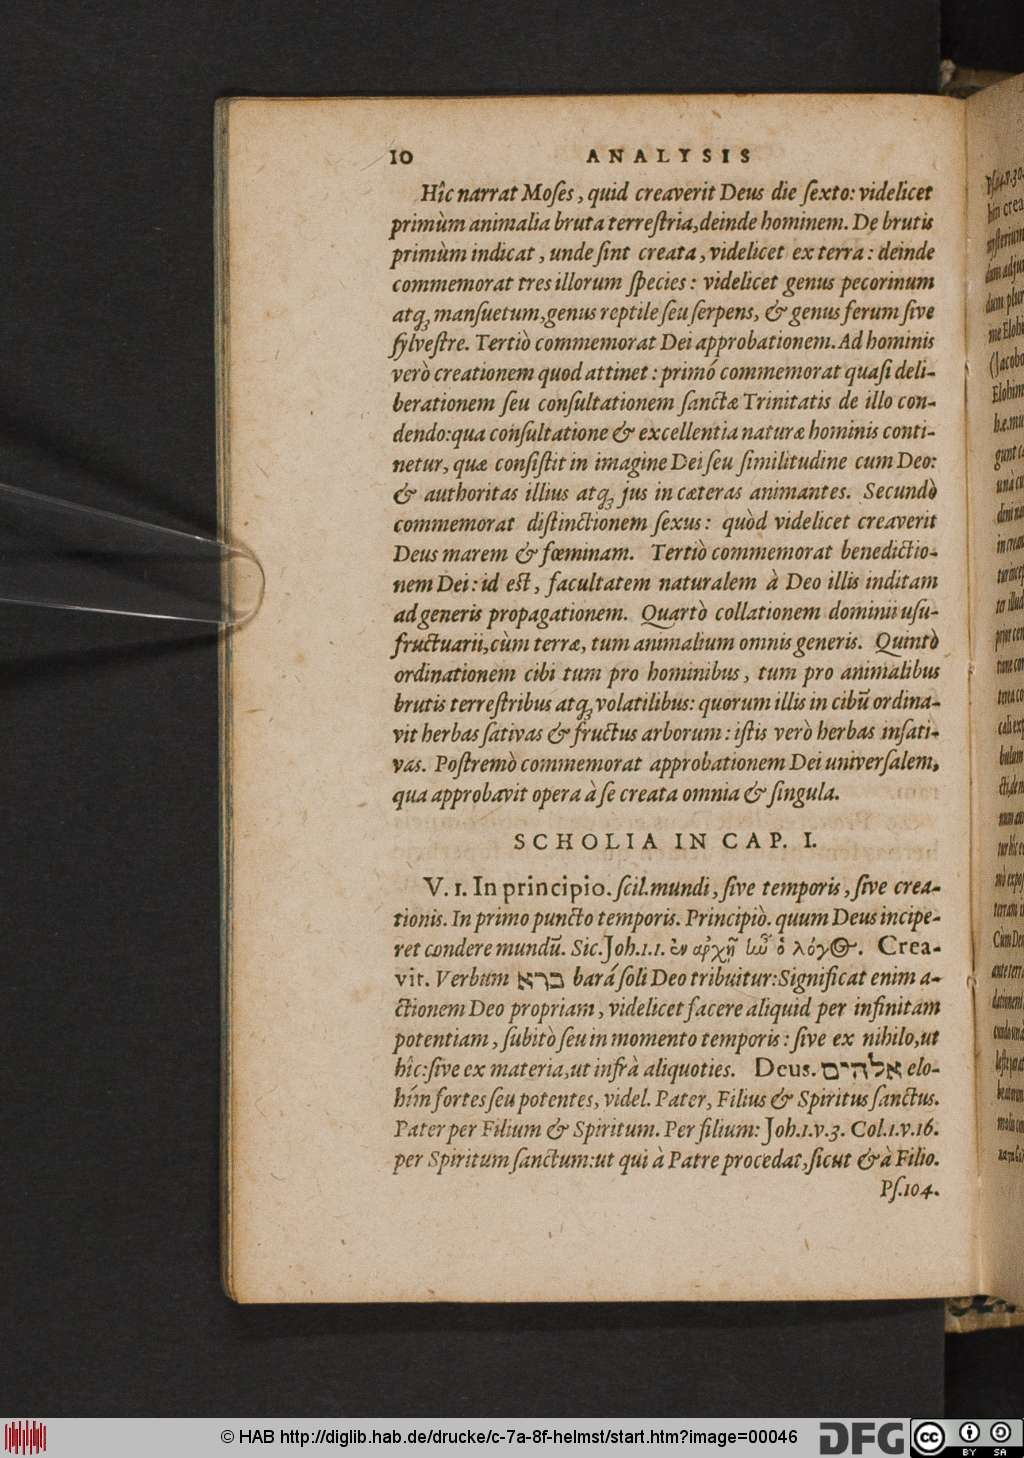 10 ANALYSIS
Hîc narrat Moſes, quid creaverit Deus die ſexto: videlicet
primùm animalia bruta terreſtria, deinde hominem. De brutis
primùm indicat, unde ſint creata, videlicet ex terra: deinde
commemorat tres illorum ſpecies: videlicet genus pecorinum
atq; manſuetum, genus reptile ſeu ſerpens, & genus ferum ſive
ſylveſtre. Tertiò commemorat Dei approbationem. Ad hominis
verò creationem quod attinet: primó commemorat quaſi deli-
berationem ſeu conſultationem ſanctæ Trinitatis de illo con-
dendo: qua conſultatione & excellentia naturæ hominis conti-
netur, quæ conſiſtit in imagine Dei ſeu ſimilitudine cum Deo:
& authoritas illius atq; jus in cæteras animantes. Secundò
commemorat diſtinctionem ſexus: quòd videlicet creaverit
Deus marem & fœminam. Tertiò commemorat benedictio-
nem Dei: id eſt, facultatem naturalem à Deo illis inditam
ad generis propagationem. Quartò collationem dominii uſu-
fructuarii, cùm terræ, tum animalium omnis generis. Quintò
ordinationem cibi tum pro hominibus, tum pro animalibus
brutis terreſtribus atq; volatilibus: quorum illis in cibũ ordina-
vit herbas ſativas & fructus arborum: iſtis verò herbas inſati-
vas. Poſtremò commemorat approbationem Dei univerſalem,
qua approbavit opera à ſe creata omnia & ſingula.
SCHOLIA IN CAP. I.
V. 1. In principio. ſcil. mundi, ſive temporis, ſive crea-
tionis. In primo puncto temporis. Principiò. quum Deus incipe-
ret condere mundũ. Sic. Joh. 1.1. ἐν ἀρχῇ ἦν ὁ λόγος. Crea-
vit. Verbum ברא bará ſoli Deo tribuitur: Significat enim a-
ctionem Deo propriam, videlicet facere aliquid per infinitam
potentiam, ſubitò ſeu in momento temporis: ſive ex nihilo, ut
hîc: ſive ex materia, ut infrà aliquoties. Deus. אלהים elo-
hím fortes ſeu potentes, videl. Pater, Filius & Spiritus ſanctus.
Pater per Filium & Spiritum. Per filium: Joh. 1. v. 3. Col. 1. v. 16.
per Spiritum ſanctum: ut qui à Patre procedat, ſicut & à Filio.
Pſ. 104.
© HAB http://diglib.hab.de/drucke/c-7a-8f-helmst/start.htm?image=00046
DFG
cc BY SA